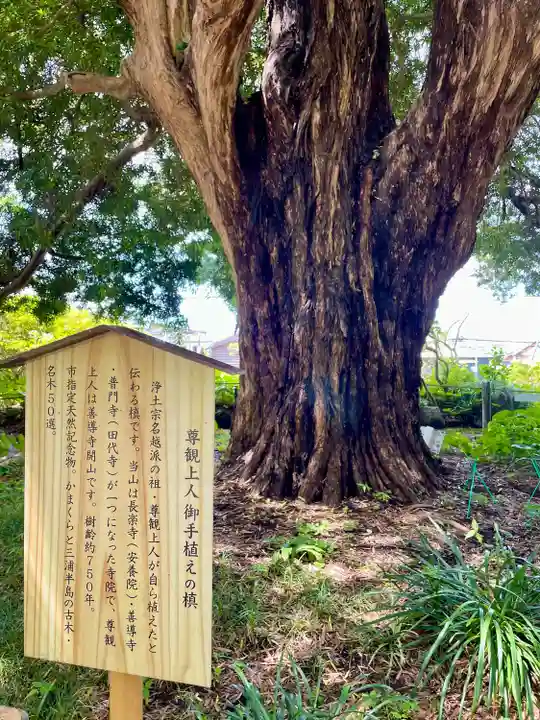 尊観上人御手植えの槙
浄土宗名越派の祖・尊観上人が自ら植えたと
伝わる槙です。当山は長楽寺（安養院）・善導寺
・普門寺（田代寺）が一つになった寺院で、尊観
上人は善導寺開山です。樹齢約７５０年。
市指定天然記念物。かまくらと三浦半島の古木・
名木５０選。